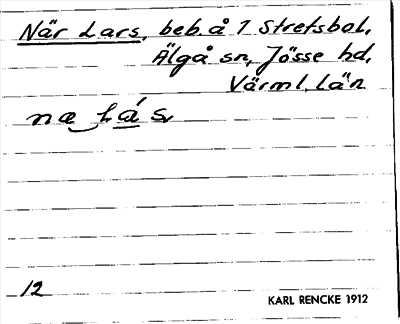 När Lars, beb. å 1 Stretsbol,
Älgå sn, Jösse hd,
Värml. län
12
KARL RENCKE 1912